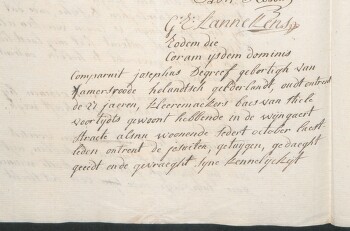 Eodem die
Coram ijsdem dominis
Comparuit josephus Degreef gebortigh van
hamersroode holandsch gelderlandt, oudt ontrent
de 27 jaeren, kleeremackers baes van stiele
voortijdts gewoont hebbende in de wijngaert
straete alsnu woonende sedert october lest
leden ontrent de jesuiten, getuygen, gedaeght
geeedt ende gevraeght syne kennelyckheyt